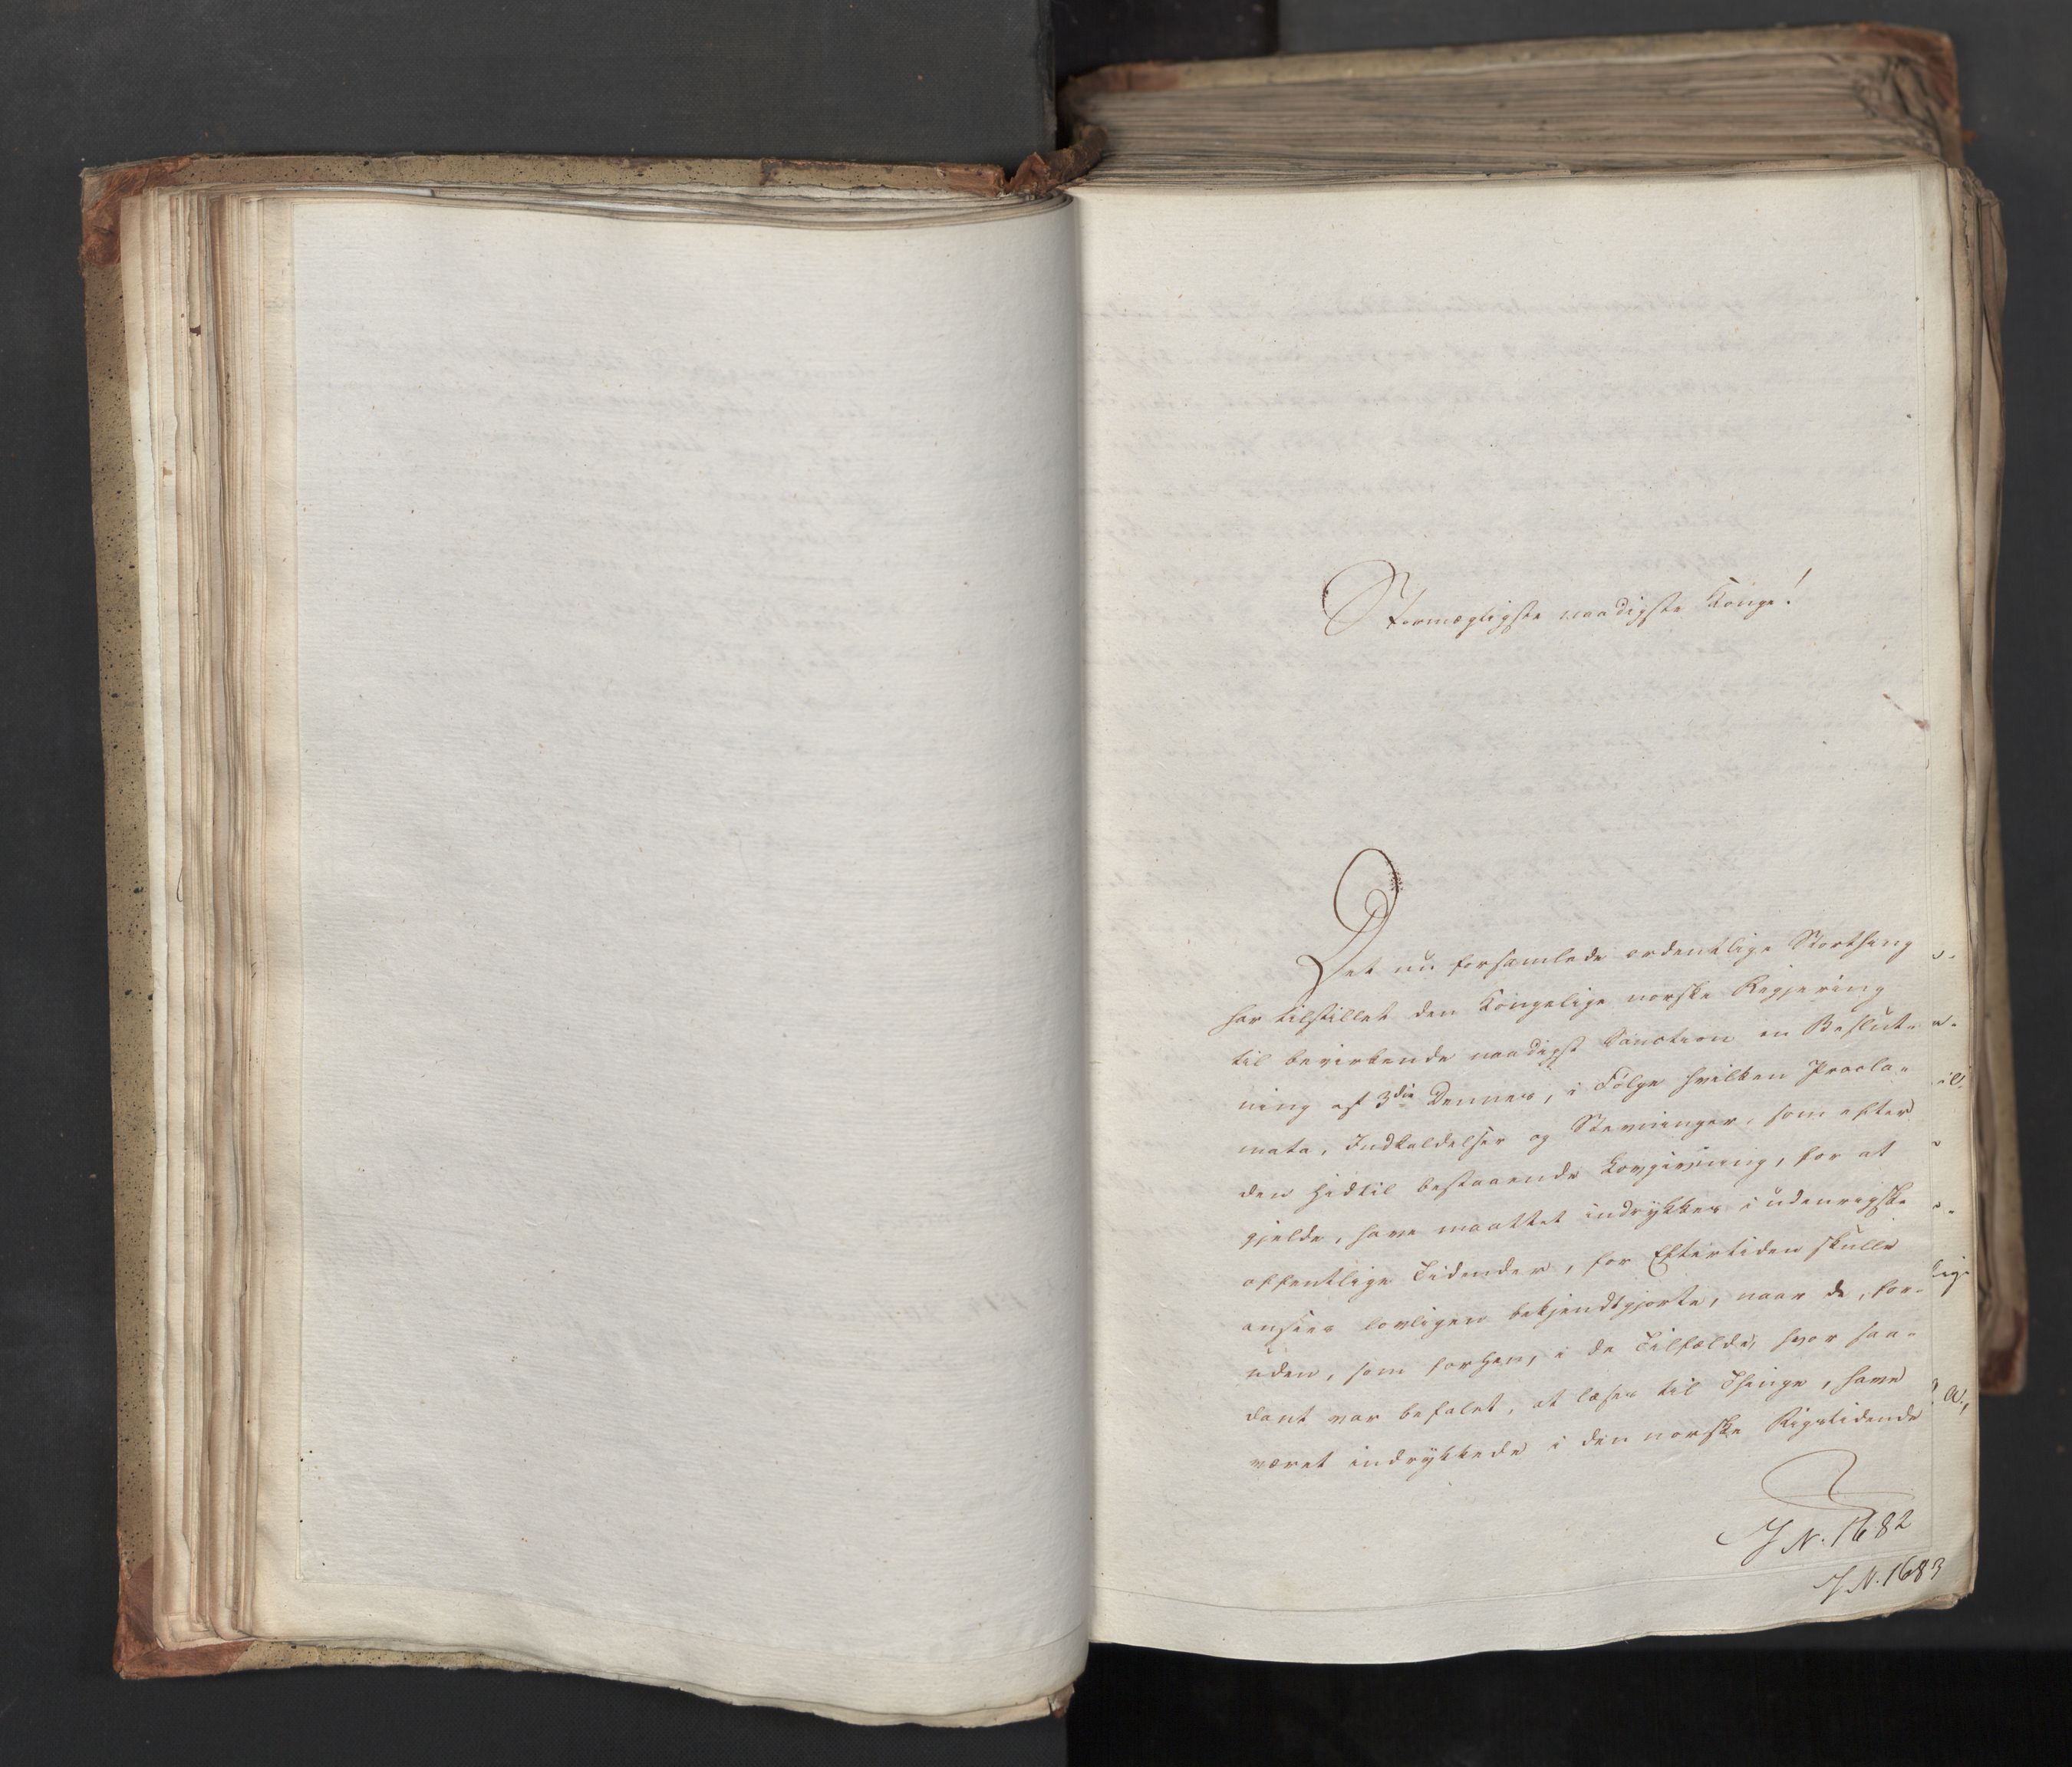 Stormægtigste naadigste Konge!
Det nu forsamlede ordentlige Storthing
har tilstillet den Kongelige norske Regjering
til bevirkende naadigst Sanction en Beslut-
ning af 3die Dennes, i Følge hvilken Procla-
mata, Indkaldelser og Stevninger, som efter
den hidtil bestaaende Lovgivning, for at
gjelde, have maattet indrykkes i udenrigske
offentlige Tidender, for Eftertiden skulle
ansees lovligen bekjendtgjorte, naar de, for-
uden, som forhen, i de Tilfælde, hvor saa-
dant var befalet, at læses til Thinge, have
været indrykkede i den norske Rigstidende
J N. 1682
J N. 1683